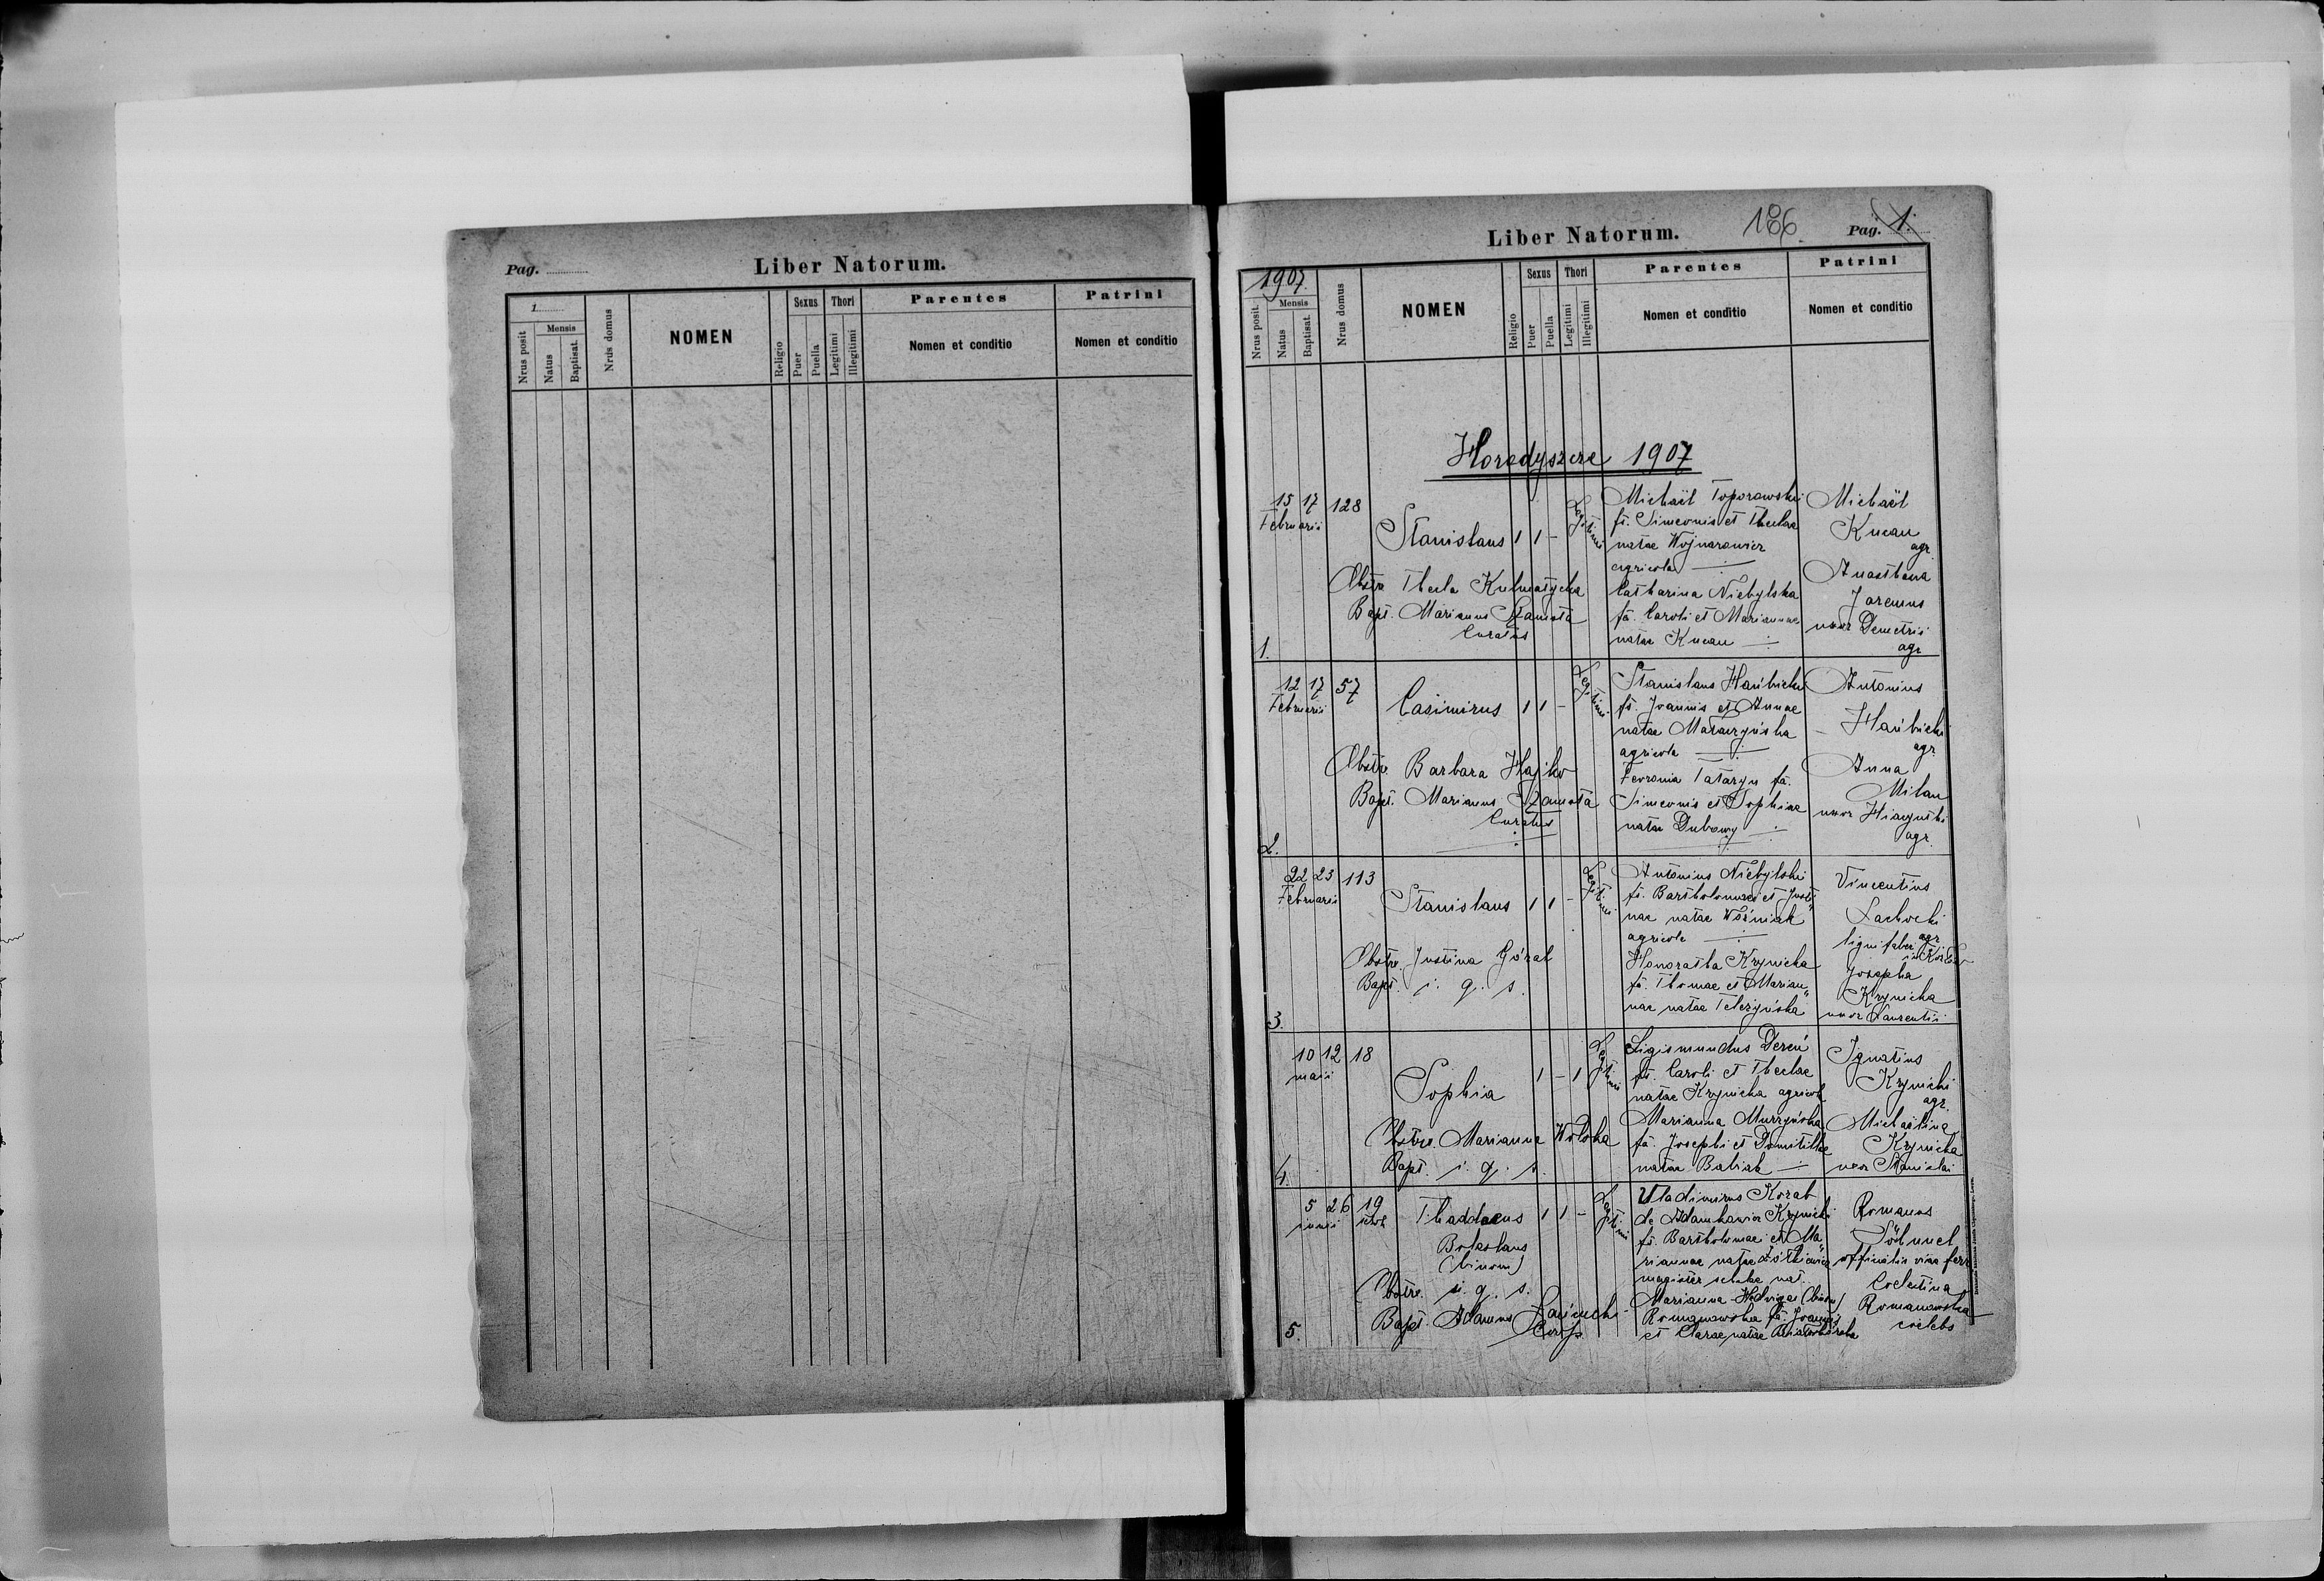 Pag.
Liber Natorum.
1
Nrus posit
Mensis
Natus
Baptisat.
Nrus domus
NOMEN
Religio
Sexus
Puer
Puella
Thori
Legitimi
Illegitimi
Parentes
Nomen et conditio
Patrini
Nomen et conditio
Liber Natorum.
186
Pag. 1.
1907.
Nrus posit.
Mensis
Natus
Baptisat.
Nrus domus
NOMEN
Religio
Sexus
Puer
Puella
Thori
Legitimi
Illegitimi
Parentes
Nomen et conditio
Patrini
Nomen et conditio
Horodyszcze 1907
1.
15 17 128
Februarii
Stanislaus 1 1 -
Legitimi
Obstr. Thecla Kulmatycka
Bapt. Marianus Szamota
Curatus
Michaël Toporowski
fs. Simeonis et Theclae
natae Wojnarowicz
agricola
Catharina Niebylska
fa. Caroli et Mariannae
natae Kucan
Michaël
Kucan
agr.
Anasthasia
Jaremus
uxor Demetrii
agr
2.
12 17 57
Februarii
Casimirus 1 1 -
Legitimi
Obstr. Barbara Hajko
Bapt. Marianus Szamota
Curatus
Stanislaus Harbicki
fs. Joannis et Annae
agricola
Fevronia Tataryn fa.
Simeonis et Sophiae
natae Dubowy
Antonius
Harbicki
agr
Anna
Milan
uxor
agr.
3.
22 23 113
Februarii
Stanislaus 1 1 -
Legitimi
Obstr. Justina Góral
Bapt. i. q. s.
Antonius Niebylski
fs. Bartholomaei et Justi
nae natae Woźniak
agricola
Honoratha Krynicka
fa. Thomae et Marian
nae natae Teleżyńska
Vincentius
Lachocki
agr.
lignifaber
Josepha
Krynicka
uxor Laurentii
4.
10 12 18
maii
Sophia 1 - 1
Legitimi
Obstr. Marianna Wolska
Bapt. i. q. s.
Sigismundus Dereń
fs. Caroli et Theclae
natae Krynicka agricola
Marianna Murzyńska
fa. Josephi et Domitillae
natae Babiak
Ignatius
Krynicki
agr.
Michaëlina
Krynicka
uxor Stanislai
5.
5 26 19
junii
Thaddaeus 1 1 -
Boleslaus
(binom)
Legitimi
Obstr. i. q. s.
Bapt. Adamus
Vladimirus Korab
de Adamkowicz Krynicki
fs. Bartholomaei et Ma
riannae natae
magister scholae nat.
Marianna Hedvigae (binom)
Romanowska fa. Joannis
et Clarae natae
Romanus
Söhnel
officialis viae ferr
Coelestina
Romanowska
coelebs